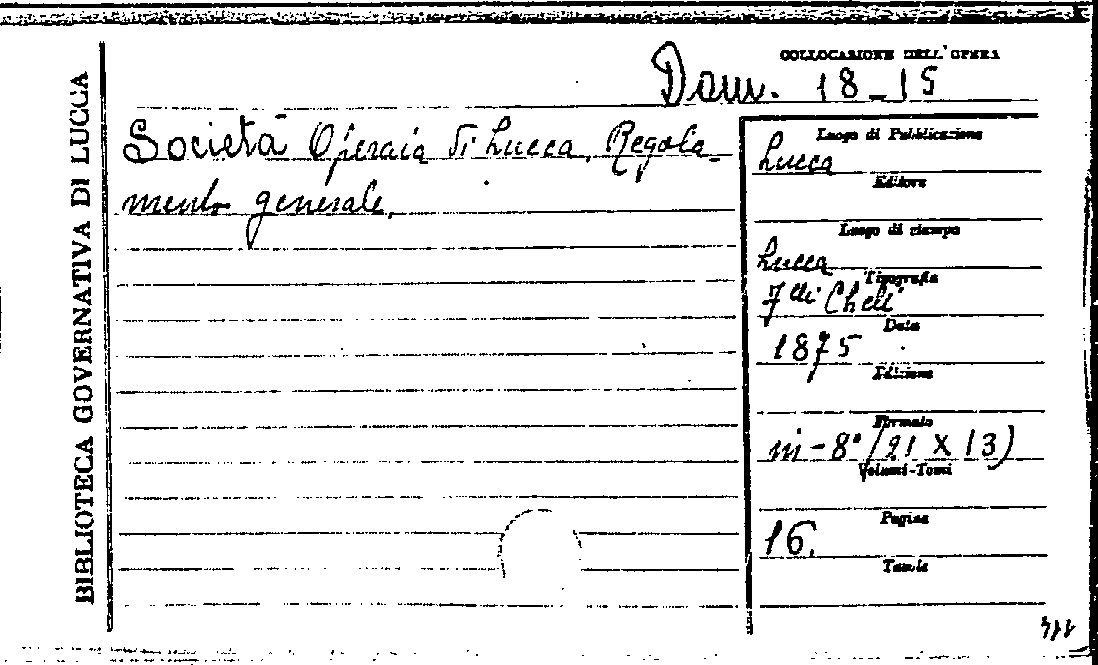 BIBLIOTECA GOVERNATIVA DI LUCCA
COLLOCAZIONE DELL'OPERA
Dom. 18-15
Società Operaia di Lucca. Regola-
mento generale.
Luogo di Pubblicazione
Lucca
Editore
Luogo di stampa
Lucca
Tipografia
Cheli
Data
1875
Edizione
Formato
in-8° (21 X 13)
Volumi-Tomi
Pagine
16.
Tavole